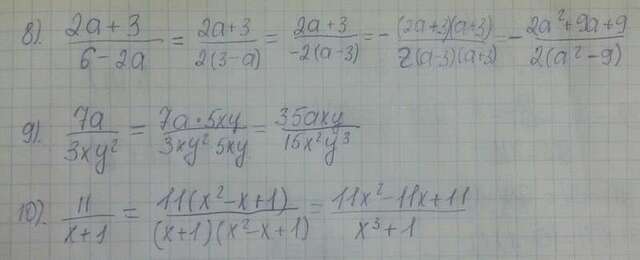 8). (2a+3)/(6-2a) = (2a+3)/(2(3-a)) = (2a+3)/(-2(a-3)) = -((2a+3)(a+3))/(2(a-3)(a+3)) = -(2a²+9a+9)/(2(a²-9))
9). (7a)/(3xy²) = (7a·5xy)/(3xy²·5xy) = (35axy)/(15x²y³)
10). (11)/(x+1) = (11(x²-x+1))/((x+1)(x²-x+1)) = (11x²-11x+11)/(x³+1)